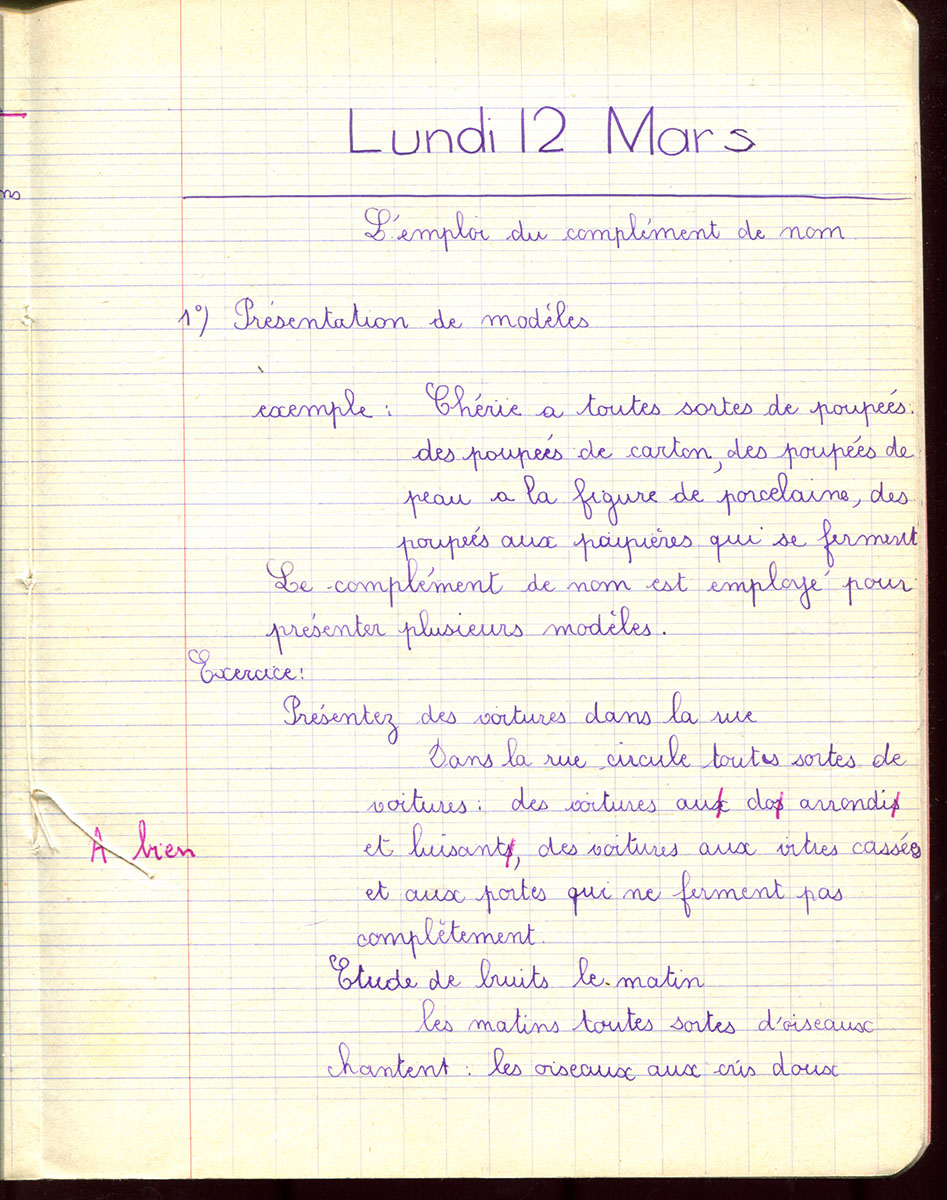 ns
Lundi 12 Mars
L'emploi du complément de nom
1°) Présentation de modèles
exemple : Chérie a toutes sortes de poupées.
des poupées de carton, des poupées de
peau a la figure de porcelaine, des
poupées aux paupières qui se ferment
Le complément de nom est employé pour
présenter plusieurs modèles.
Exercice :
Présentez des voitures dans la rue
Dans la rue circule toutes sortes de
voitures : des voitures aux dos arrondis
À bien
et luisants, des voitures aux vitres cassées
et aux portes qui ne ferment pas
complètement.
Etude de bruits le matin
les matins toutes sortes d'oiseaux
chantent : les oiseaux aux cris doux